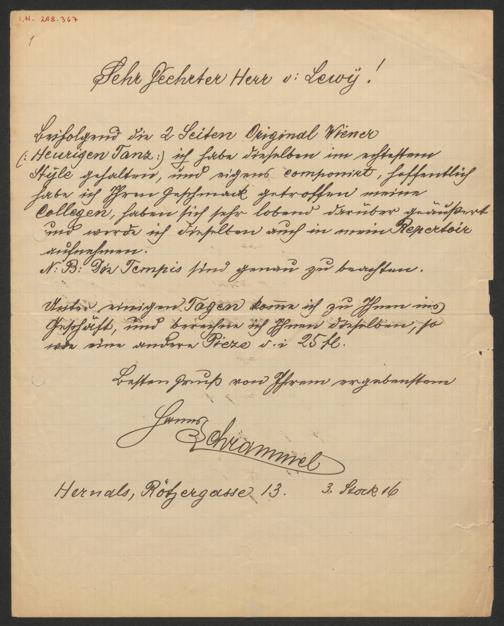 I.N. 208.367
1
Sehr Geehrter Herr v: Lewÿ!
Beifolgend die 2 Seiten Original Wiener
(: Heurigen Tanz :) ich habe dieselben im echtesten
Style gehalten, und eigens componirt, hoffentlich
habe ich Ihren Geschmack getroffen meine
Collegen, haben sich sehr lobend darüber geäußert
und werde ich dieselben auch in mein Repertoir
aufnehmen.
N: B: Die Tempis sind genau zu beachten.
Unter einigen Tagen komme ich zu Ihnen ins
Geschäft, und berechne ich Ihnen dieselben, so
wie eine andere Pieze d. i 25 fl.
Besten Gruß von Ihrem ergebensten
Hanns
Schrammel
Hernals, Rötzergasse 13. 3. Stock 16